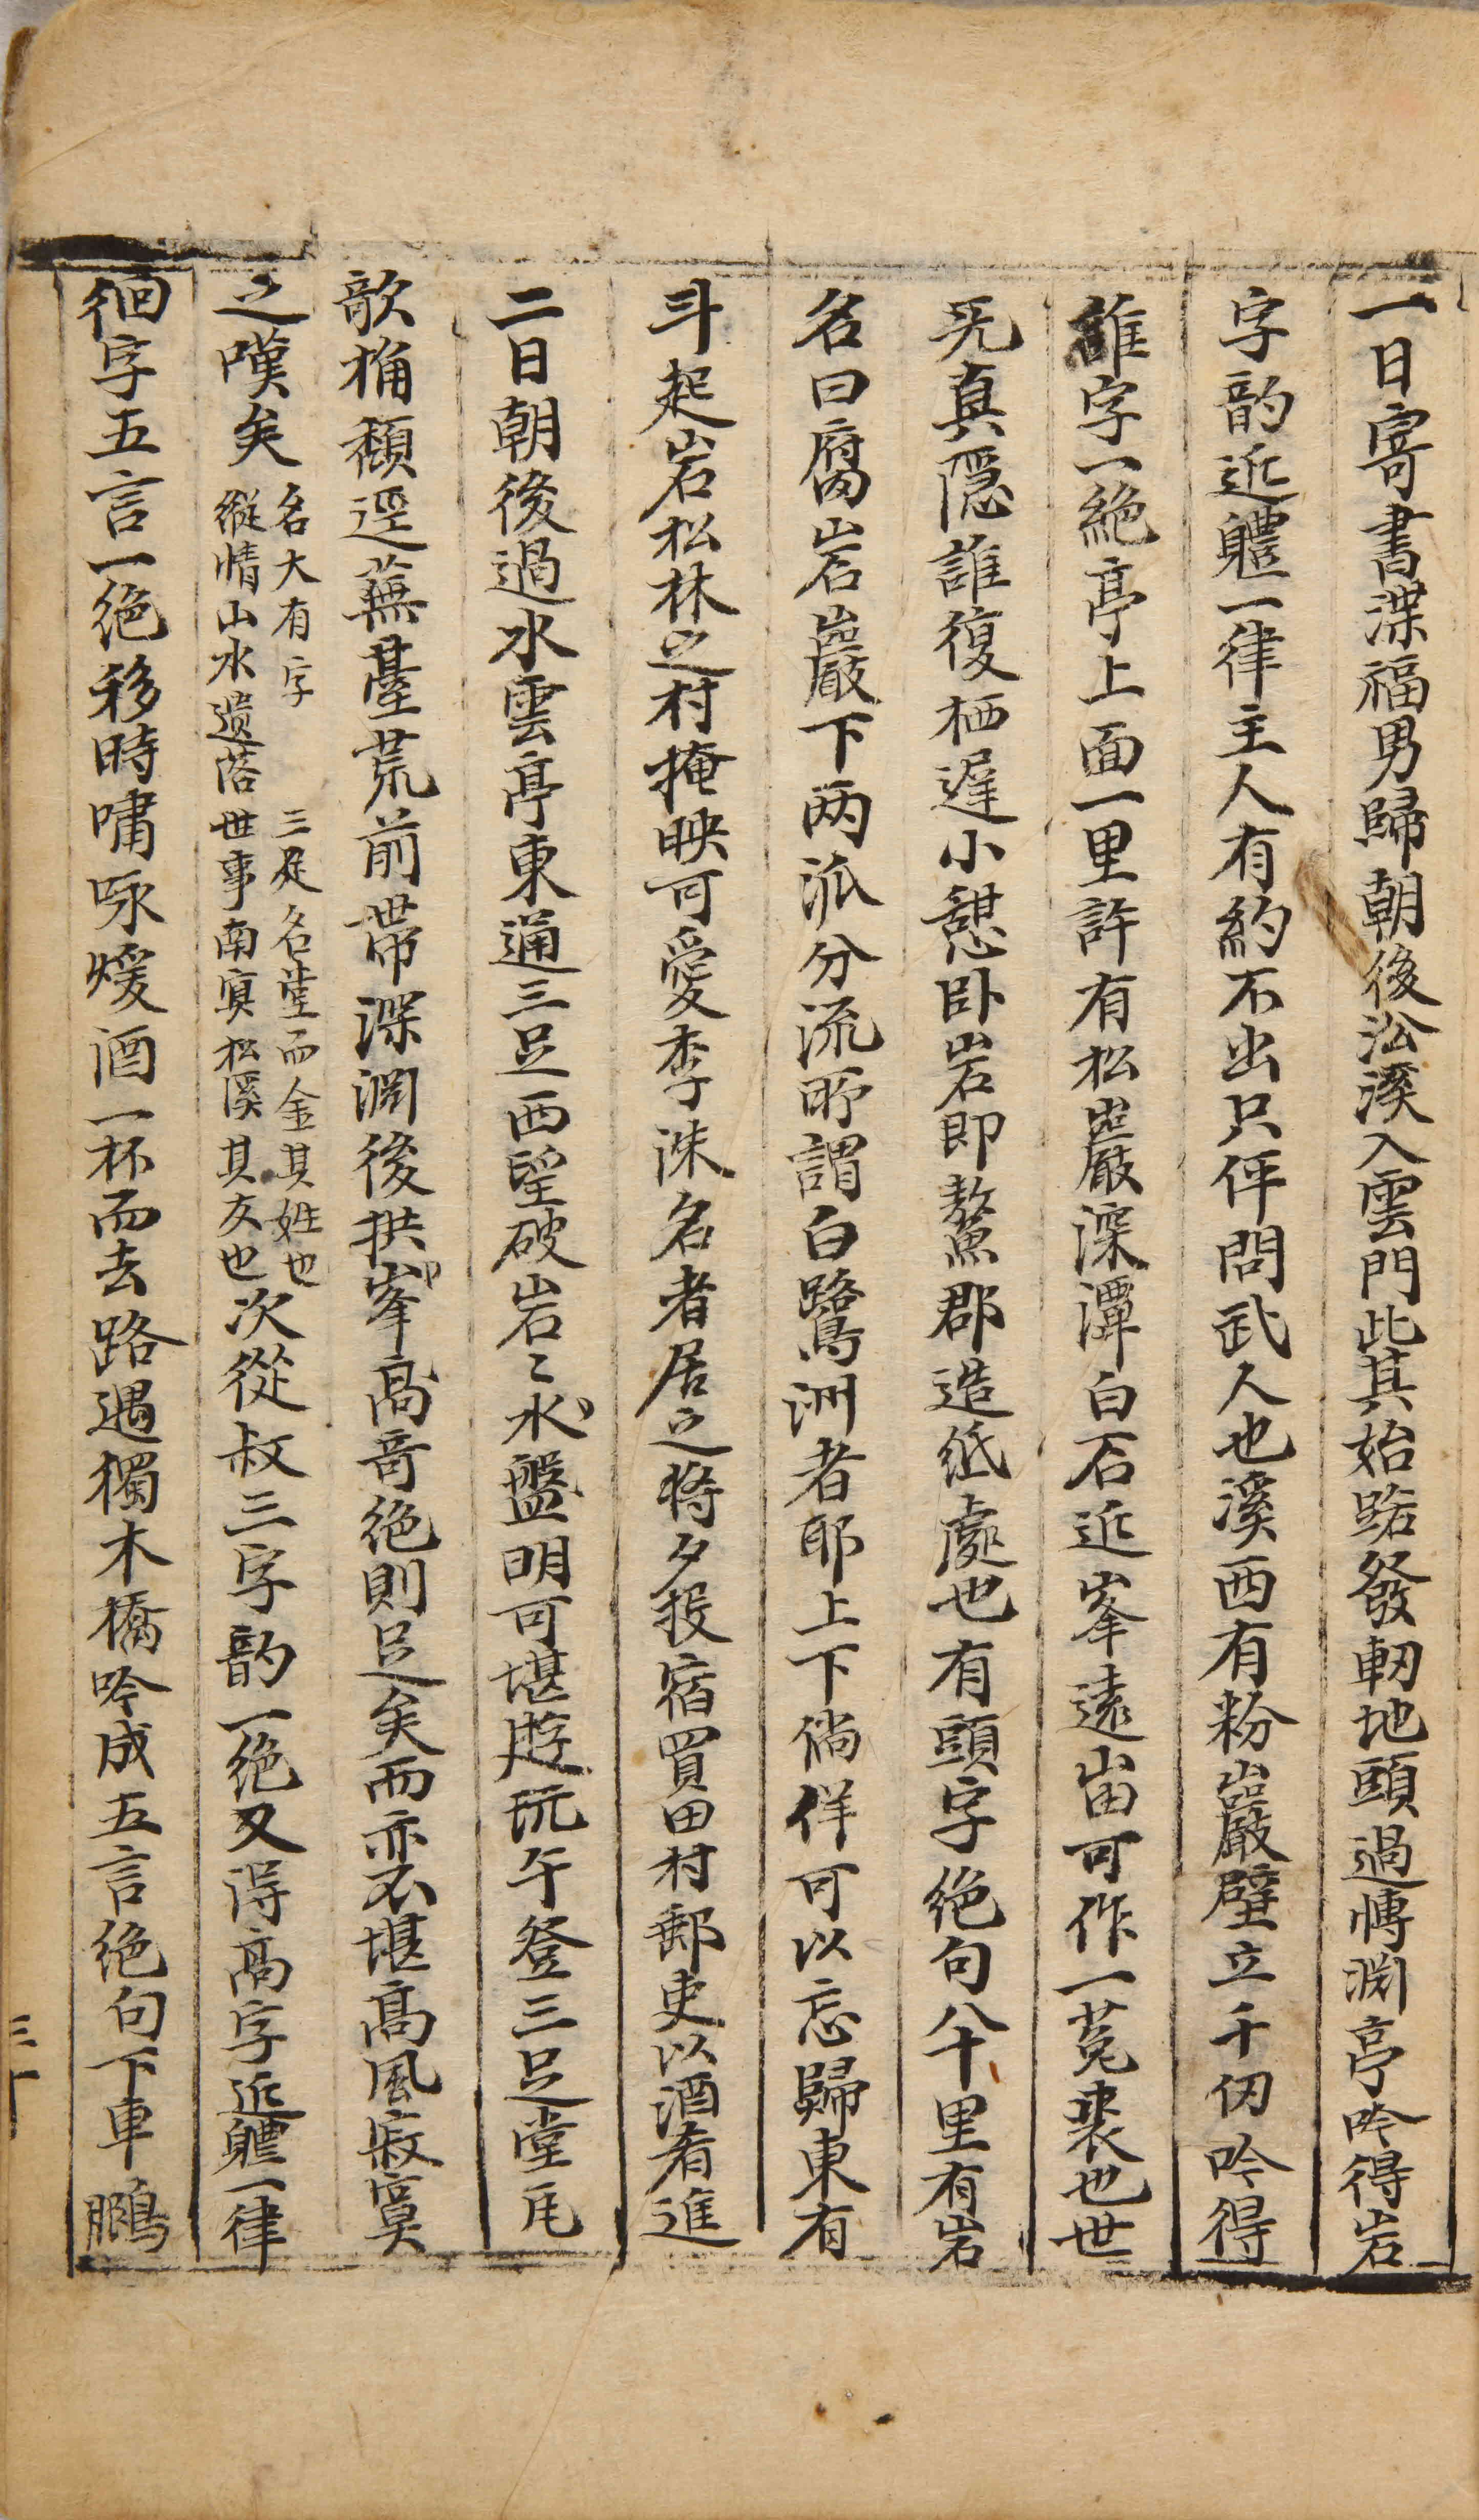 一日寄書渫福男歸朝後沿溪入雲門此其始踏發軔地頭過愽淵亭吟得岩
字韵近軆一律主人有約不出只伻問武人也溪西有粉巖壁立千仞吟得
誰字一絶亭上面一里許有松巖深潭白石近峯遠岫可作一菟裘也世
旡真隱誰復栖遲小憇卧岩即鰲郡造紙處也有頭字絶句八十里有岩
名曰腐岩巖下两沠分流所謂白鷺洲者耶上下徜徉可以忘歸東有
斗起岩松林之村掩映可愛李洙名者居之將夕投宿買田村郵吏以酒肴進
二日朝後過水雲亭東通三足西望破岩〻水盤明可堪遊玩午登三足堂瓦
歆桷頹逕蕪臺荒前帶深淵後拱峯高奇絶則足矣而亦不堪高風寂寞
之嘆矣
名大有字　三足名堂而金其姓也
縱情山水遺落世事南寘松溪其友也
次從叔三字韵一絶又得高字近軆一律
徊字五言一絶移時嘯咏煖酒一杯而去路遇獨木橋吟成五言絶句下車鵬
三十